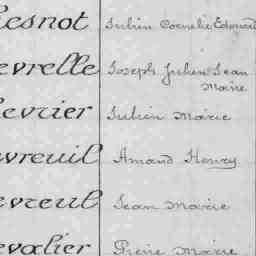 esnot Julien Cornelie Edouard
evrelle Joseph Julien Jean
Marie
evrier Julien Marie
vreuil Amand Henry
evreul Jean Marie
evalier Pierre Marie